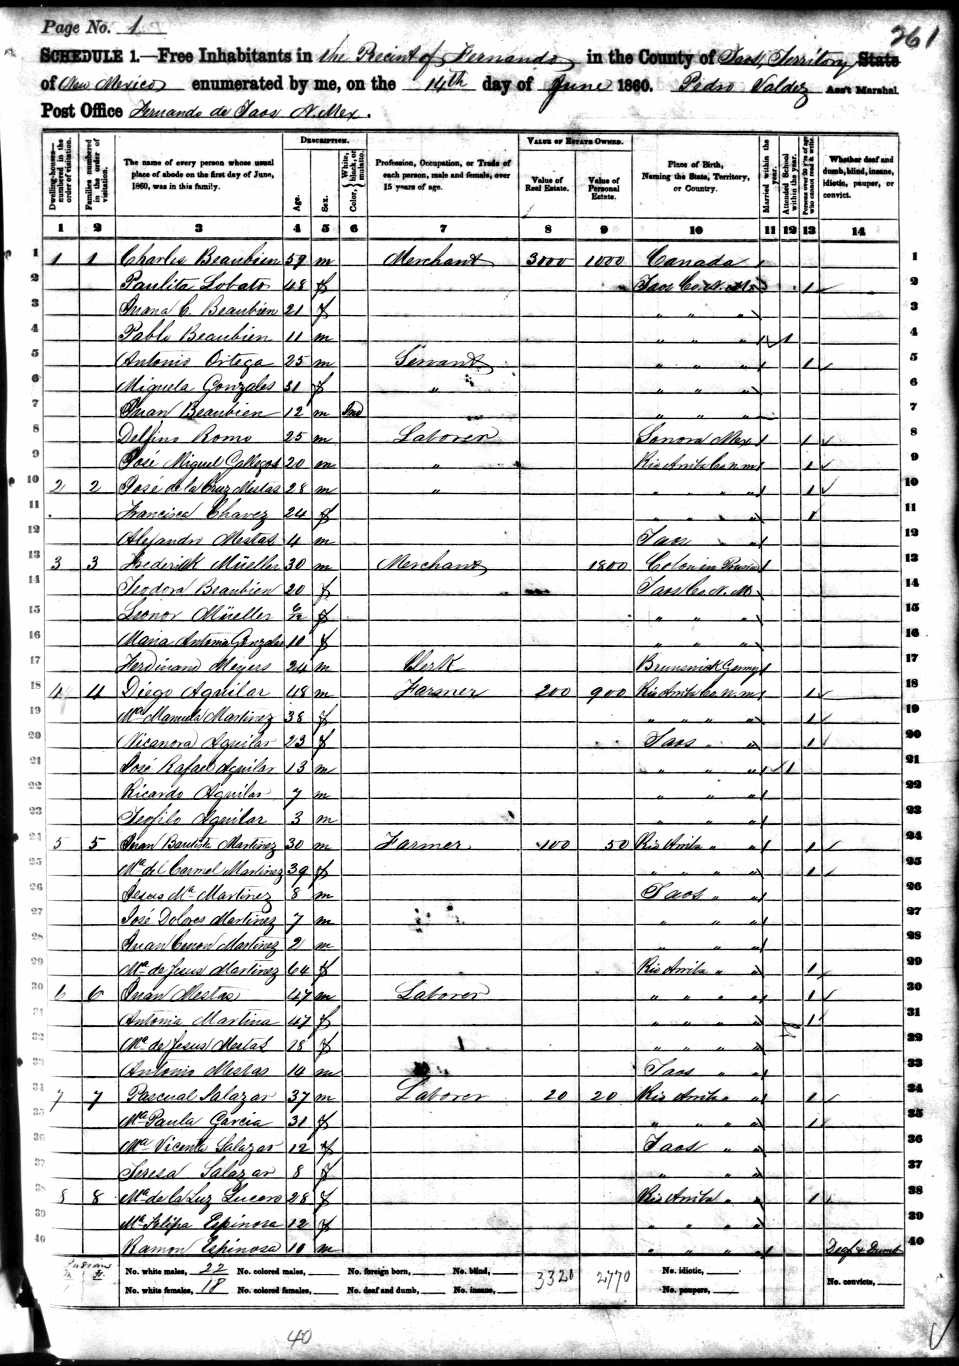 Page No. 1
261
SCHEDULE 1.—Free Inhabitants in the Precint of Fernando in the County of Taos, Territory State
of New Mexico enumerated by me, on the 14th day of June 1860. Pedro Valdez Ass't Marshal.
Post Office Fernando de Taos N. Mex.
DESCRIPTION. VALUE OF ESTATE OWNED.
Dwelling-houses—numbered in the order of visitation. Families numbered in the order of visitation. The name of every person whose usual place of abode on the first day of June, 1860, was in this family. Age. Sex. Color, White, black, or mulatto. Profession, Occupation, or Trade of each person, male and female, over 15 years of age. Value of Real Estate. Value of Personal Estate. Place of Birth, Naming the State, Territory, or Country. Married within the year. Attended School within the year. Persons over 20 y'rs of age who cannot read & write. Whether deaf and dumb, blind, insane, idiotic, pauper, or convict.
1 2 3 4 5 6 7 8 9 10 11 12 13 14
1 1 1 Charles Beaubien 59 m Merchant 3000 1000 Canada 1
2 Paulita Lobato 48 f Taos Co. N. M. 1 2
3 Juana C. Beaubien 21 f " " " 3
4 Pablo Beaubien 11 m " " " 1 4
5 Antonio Ortega 25 m Servant " " " 1 5
6 Miguela Gonzales 31 f " " " " 6
7 Juan Beaubien 12 m Ind " " " 7
8 Delfino Romo 25 m Laborer Sonora Mex 1 8
9 José Miguel Gallegos 20 m " Rio Arriba Co. N. M 1 9
10 2 2 José de la Cruz Mestas 28 m " " " " " 1 10
11 Francisca Chavez 24 f " " " 1 11
12 Alejandro Mestas 4 m Taos " " 12
13 3 3 Frederick Müeller 30 m Merchant 1800 13
14 Teodora Beaubien 20 f Taos Co. N. M. 14
15 Leonor Müeller f " " " 15
16 Maria Antonia Gonzales 10 f " " " 16
17 Ferdinand Meyers 24 m Clerk Brunswick Germy 17
18 4 4 Diego Aguilar 48 m Farmer 200 900 Rio Arriba Co. N. M 1 18
19 Ma. Manuela Martinez 38 f " " " " 1 19
20 Nicanora Aguilar 23 f Taos " " 1 20
21 José Rafael Aguilar 13 m " " " 1 21
22 Ricardo Aguilar 7 m " " " 22
23 Teofilo Aguilar 3 m " " " 23
24 5 5 Juan Bautista Martinez 30 m Farmer 100 50 Rio Arriba " " 1 24
25 Ma. del Carmel Martinez 39 f " " " " 1 25
26 Jesus Ma. Martinez 8 m Taos " " 26
27 José Dolores Martinez 7 m " " " 27
28 Juan Martinez 2 m " " " 28
29 Ma. de Jesus Martinez 64 f Rio Arriba " " 1 29
30 6 6 Juan Mestas 47 m Laborer " " " " 1 30
31 Antonia Martina 47 f " " " " 1 31
32 Ma. de Jesus Mestas 18 f " " " " 32
33 Antonio Mestas 10 m Taos " " 33
34 7 7 Pascual Salazar 37 m Laborer 20 20 Rio Arriba " " 1 34
35 Ma. Paula Garcia 31 f " " " " 1 35
36 Ma. Vicenta Salazar 12 f Taos " " 36
37 Teresa Salazar 8 f " " " 37
38 8 8 Ma. de la Luz Lucero 28 f Rio Arriba " " 1 38
39 Ma. Felipa Espinosa 12 f " " " " 39
40 Ramon Espinosa 10 m " " " " Deaf & Dumb 40
No. white males, 22 No. colored males, No. foreign born, No. blind, 3320 2770 No. idiotic,
No. white females, 18 No. colored females, No. deaf and dumb, No. insane, No. paupers, No. convicts,
40